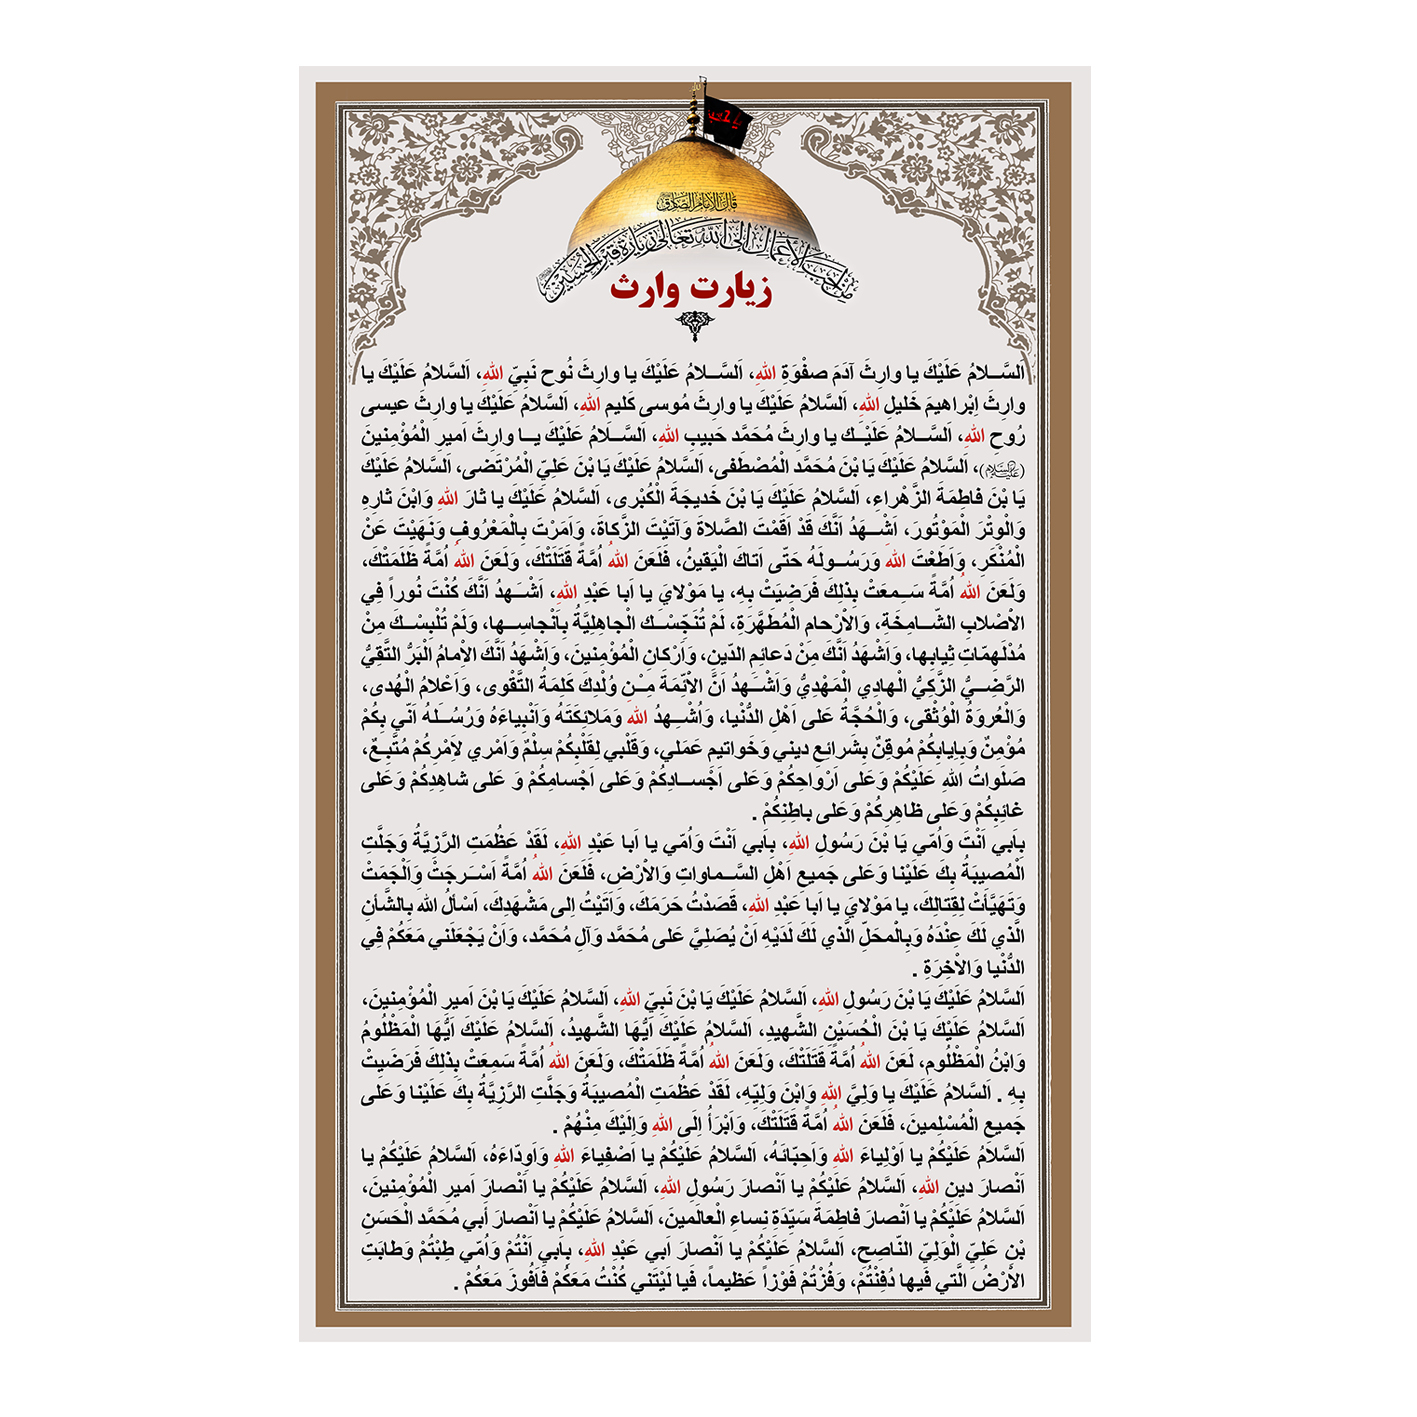 يا حسين
قال الإمام الصادق
من أحب الأعمال إلى الله تعالى زيارة قبر الحسين
زیارت وارث
اَلسَّــلامُ عَلَيْكَ يا وارِثَ آدَمَ صَفْوَةِ اللهِ، اَلسَّــلامُ عَلَيْكَ يا وارِثَ نُوح نَبِيِّ اللهِ، اَلسَّلامُ عَلَيْكَ يا
وارِثَ اِبْراهيمَ خَليلِ اللهِ، اَلسَّلامُ عَلَيْكَ يا وارِثَ مُوسى كَليمِ اللهِ، اَلسَّلامُ عَلَيْكَ يا وارِثَ عيسى
رُوحِ اللهِ، اَلسَّــلامُ عَلَيْــكَ يا وارِثَ مُحَمَّد حَبيبِ اللهِ، اَلسَّــلامُ عَلَيْكَ يــا وارِثَ اَميرِ الْمُؤْمِنينَ
(عليه السلام)، اَلسَّلامُ عَلَيْكَ يَا بْنَ مُحَمَّد الْمُصْطَفى، اَلسَّلامُ عَلَيْكَ يَا بْنَ عَلِيّ الْمُرْتَضى، اَلسَّلامُ عَلَيْكَ
يَا بْنَ فاطِمَةَ الزَّهْراءِ، اَلسَّلامُ عَلَيْكَ يَا بْنَ خَديجَةَ الْكُبْرى، اَلسَّلامُ عَلَيْكَ يا ثارَ اللهِ وَابْنَ ثارِهِ
وَالْوِتْرَ الْمَوْتُورَ، اَشْــهَدُ اَنَّكَ قَدْ اَقَمْتَ الصَّلاةَ وَآتَيْتَ الزَّكاةَ، وَاَمَرْتَ بِالْمَعْرُوفِ وَنَهَيْتَ عَنْ
الْمُنْكَرِ، وَاَطَعْتَ اللهَ وَرَسُــولَهُ حَتّى اَتاكَ الْيَقينُ، فَلَعَنَ اللهُ اُمَّةً قَتَلَتْكَ، وَلَعَنَ اللهُ اُمَّةً ظَلَمَتْكَ،
وَلَعَنَ اللهُ اُمَّةً سَــمِعَتْ بِذلِكَ فَرَضِيَتْ بِهِ، يا مَوْلايَ يا اَبا عَبْدِ اللهِ، اَشْــهَدُ اَنَّكَ كُنْتَ نُوراً فِي
الاَصْلابِ الشّــامِخَةِ، وَالاَرْحامِ الْمُطَهَّرَةِ، لَمْ تُنَجِّسْــكَ الْجاهِلِيَّةُ بِاَنْجاسِــها، وَلَمْ تُلْبِسْــكَ مِنْ
مُدْلَهِمّاتِ ثِيابِها، وَاَشْهَدُ اَنَّكَ مِنْ دَعائِمِ الدّينِ، وَاَرْكانِ الْمُؤْمِنينَ، وَاَشْهَدُ اَنَّكَ الاِمامُ الْبَرُّ التَّقِيُّ
الرَّضِــيُّ الزَّكِيُّ الْهادِي الْمَهْدِيُّ وَاَشْــهَدُ اَنَّ الاَئِمَّةَ مِــنْ وُلْدِكَ كَلِمَةُ التَّقْوى، وَاَعْلامُ الْهُدى،
وَالْعُرْوَةُ الْوُثْقى، وَالْحُجَّةُ عَلى اَهْلِ الدُّنْيا، وَاُشْــهِدُ اللهَ وَمَلائِكَتَهُ وَاَنْبِياءَهُ وَرُسُــلَهُ اَنّي بِكُمْ
مُؤْمِنٌ وَبِاِيابِكُمْ مُوقِنٌ بِشَرائِعِ ديني وَخَواتيمِ عَمَلي، وَقَلْبي لِقَلْبِكُمْ سِلْمٌ وَاَمْري لاَمْرِكُمْ مُتَّبِعٌ،
صَلَواتُ اللهِ عَلَيْكُمْ وَعَلى اَرْواحِكُمْ وَعَلى اَجْســادِكُمْ وَعَلى اَجْسامِكُمْ وَ عَلى شاهِدِكُمْ وَعَلى
غائِبِكُمْ وَعَلى ظاهِرِكُمْ وَعَلى باطِنِكُمْ .
بِاَبي اَنْتَ وَاُمّي يَا بْنَ رَسُولِ اللهِ، بِاَبي اَنْتَ وَاُمّي يا اَبا عَبْدِ اللهِ، لَقَدْ عَظُمَتِ الرَّزِيَّةُ وَجَلَّتِ
الْمُصيبَةُ بِكَ عَلَيْنا وَعَلى جَميعِ اَهْلِ السَّــماواتِ وَالاَرْضِ، فَلَعَنَ اللهُ اُمَّةً اَسْــرَجَتْ وَاَلْجَمَتْ
وَتَهَيَّأَتْ لِقِتالِكَ، يا مَوْلايَ يا اَبا عَبْدِ اللهِ، قَصَدْتُ حَرَمَكَ، وَاَتَيْتُ اِلى مَشْهَدِكَ، اَسْأَلُ الله بِالشَّأنِ
الَّذي لَكَ عِنْدَهُ وَبِالْمحَلِّ الَّذي لَكَ لَدَيْهِ اَنْ يُصَلِيَّ عَلى مُحَمَّد وَآلِ مُحَمَّد، وَاَنْ يَجْعَلَني مَعَكُمْ فِي
الدُّنْيا وَالاْخِرَةِ .
اَلسَّلامُ عَلَيْكَ يَا بْنَ رَسُولِ اللهِ، اَلسَّلامُ عَلَيْكَ يَا بْنَ نَبِيِّ اللهِ، اَلسَّلامُ عَلَيْكَ يَا بْنَ اَميرِ الْمُؤْمِنينَ،
اَلسَّلامُ عَلَيْكَ يَا بْنَ الْحُسَيْنِ الشَّهيدِ، اَلسَّلامُ عَلَيْكَ اَيُّهَا الشَّهيدُ، اَلسَّلامُ عَلَيْكَ اَيُّهَا الْمَظْلُومُ
وَابْنُ الْمَظْلُومِ، لَعَنَ اللهُ اُمَّةً قَتَلَتْكَ، وَلَعَنَ اللهُ اُمَّةً ظَلَمَتْكَ، وَلَعَنَ اللهُ اُمَّةً سَمِعَتْ بِذلِكَ فَرَضِيَتْ
بِهِ . اَلسَّلامُ عَلَيْكَ يا وَلِيَّ اللهِ وَابْنَ وَلِيِّهِ، لَقَدْ عَظُمَتِ الْمُصيبَةُ وَجَلَّتِ الرَّزِيَّةُ بِكَ عَلَيْنا وَعَلى
جَميعِ الْمُسْلِمينَ، فَلَعَنَ اللهُ اُمَّةً قَتَلَتْكَ، وَاَبْرَأُ اِلَى اللهِ وَاِلَيْكَ مِنْهُمْ .
اَلسَّلامُ عَلَيْكُمْ يا اَوْلِياءَ اللهِ وَاَحِبّائَهُ، اَلسَّلامُ عَلَيْكُمْ يا اَصْفِياءَ اللهِ وَاَوِدّاءَهُ، اَلسَّلامُ عَلَيْكُمْ يا
اَنْصارَ دينِ اللهِ، اَلسَّلامُ عَلَيْكُمْ يا اَنْصارَ رَسُولِ اللهِ، اَلسَّلامُ عَلَيْكُمْ يا اَنْصارَ اَميرِ الْمُؤْمِنينَ،
اَلسَّلامُ عَلَيْكُمْ يا اَنْصارَ فاطِمَةَ سَيِّدَةِ نِساءِ الْعالَمينَ، اَلسَّلامُ عَلَيْكُمْ يا اَنْصارَ أَبي مُحَمَّد الْحَسَنِ
بْنِ عَلِيّ الْوَلِيّ النّاصِحِ، اَلسَّلامُ عَلَيْكُمْ يا اَنْصارَ اَبي عَبْدِ اللهِ، بِاَبي اَنْتُمْ وَاُمّي طِبْتُمْ وَطابَتِ
الاَرْضُ الَّتي فيها دُفِنْتُمْ، وَفُزْتُمْ فَوْزاً عَظيماً، فَيا لَيْتَني كُنْتُ مَعَكُمْ فَاَفُوزَ مَعَكُمْ .